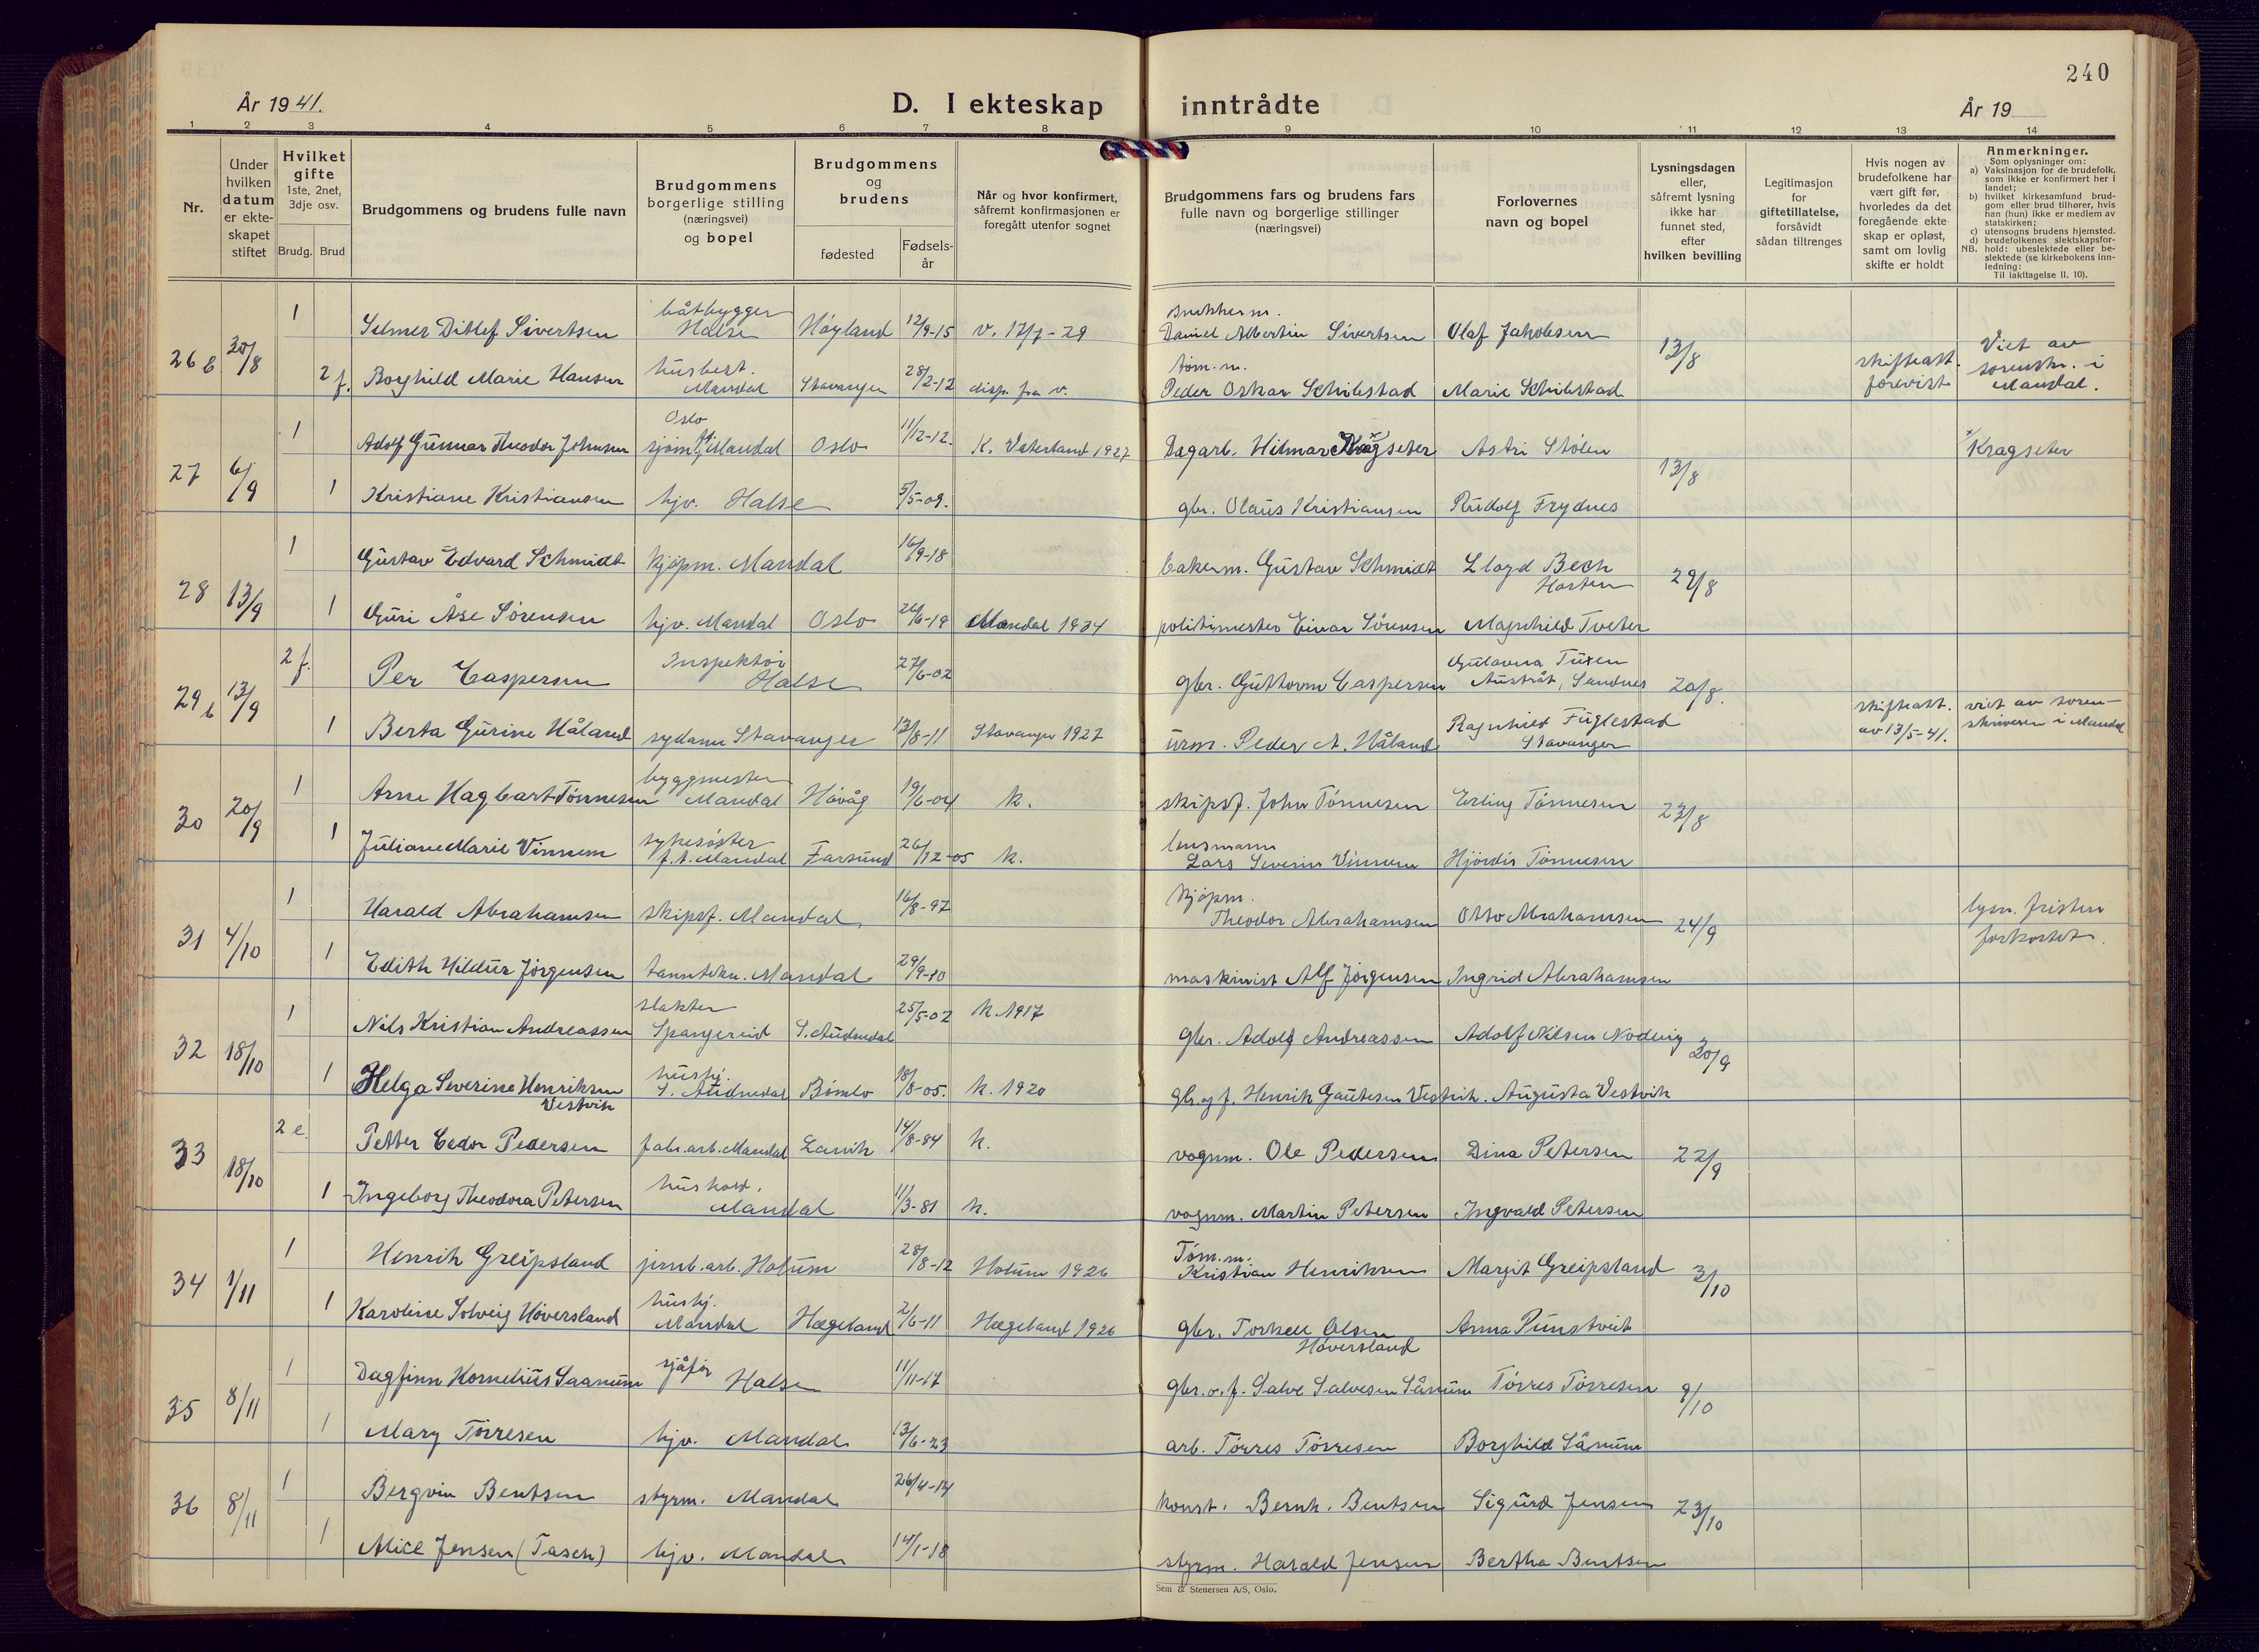 240
År 1941.
D. I ekteskap inntrådte
År 19
1 2 3 4 5 6 7 8 9 10 11 12 13 14
Nr.
Under hvilken datum er ekteskapet stiftet
Hvilket gifte 1ste, 2net, 3dje osv.
Brudg. Brud
Brudgommens og brudens fulle navn
Brudgommens borgerlige stilling (næringsvei) og bopel
Brudgommens og brudens
fødested
Fødselsår
Når og hvor konfirmert, såfremt konfirmasjonen er foregått utenfor sognet
Brudgommens fars og brudens fars fulle navn og borgerlige stillinger (næringsvei)
Forlovernes navn og bopel
Lysningsdagen eller, såfremt lysning ikke har funnet sted, efter hvilken bevilling
Legitimasjon for giftetillatelse, forsåvidt sådan tiltrenges
Hvis nogen av brudefolkene har vært gift før, hvorledes da det foregående ekteskap er opløst, samt om lovlig skifte er holdt
Anmerkninger.
Som oplysninger om:
a) Vaksinasjon for de brudefolk, som ikke er konfirmert her i landet;
b) hvilket kirkesamfund brudgom eller brud tilhører, hvis han (hun) ikke er medlem av statskirken;
c) utensogns brudens hjemsted.
d) brudefolkenes slektskapsforhold: ubeslektede eller beslektede (se kirkebokens innledning:
NB. Til iakttagelse II. 10).
26 b 30/8 1 Selmer Ditlef Sivertsen båtbygger Halse Høyland 12/9-15 v. 12/7-29 Daniel Albertin Sivertsen Olaf Jakobsen 13/8
2 f. Borghild Marie Hansen husbest. Mandal Stavanger 28/2-12 disp. fra v. tøm.m. Peder Oskar Schibstad Marie Schibstad skifteatt. forevist Viet av sorenskr. i Mandal.
27 6/9 1 Adolf Gunnar Theodor Johnsen Oslo sjøm. Mandal Oslo 11/12-12. K. Vaterland 1927 Dagarb. Hilmar Kragseter Astri Stølen 13/8 × Kragseter
1 Kristiane Kristiansen hjv. Halse 5/5-09. gbr. Olaus Kristiansen Rudolf Frydnes
28 13/9 1 Gustav Edvard Schmidt kjøpm. Mandal 16/9-18 bakerm. Gustav Schmidt Lloyd Bech Horten 29/8
1 Guri Åse Sørensen hjv. Mandal Oslo 26/6-19 Mandal 1934 politimester Einar Sørensen Magnhild Tveter
29 b 13/9 2 f. Per Caspersen Inspektør Halse 27/6-02 gbr. Guttorm Caspersen Austråt, Sandnes 20/8.
1 Berta Gurine Håland sydame Stavanger 13/8-11 Stavanger 1927 urm. Peder A. Håland Ragnhild Fuglestad Stavanger skifteatt. av 13/5-41. viet av sorenskriveren i Mandal
30 20/9 1 Arne Hagbart Tønnesen byggmester Mandal Høvåg 19/6-04 k. skipsf. John Tønnesen Erling Tønnesen 23/8
1 Juliane Marie Vinnem sykesøster f.t. Mandal Farsund 26/12-05 k. lensmann Lars Severin Vinnem Hjördis Tønnesen
31 4/10 1 Harald Abrahamsen skipsf. Mandal 16/8-97 kjøpm. Theodor Abrahamsen Otto Abrahamsen 24/9 lysn. fristen forkortet.
1 Edith Hildur Jørgensen tanntekn. Mandal 29/9-10 maskinist Alf Jørgensen Ingrid Abrahamsen
32 18/10 1 Nils Kristian Andreassen slakter Spangereid S. Audnedal 25/5-02 k. 1917 gbr. Adolf Andreassen Adolf Nilsen Nodevig 30/9
1 Helga Severine Henriksen Vestvik hushj. S. Audnedal Bømlo 18/8-05. k. 1920 gbr. og f. Henrik Gautesen Vestvik. Augusta Vestvik
33 18/10 2 e. Petter Cedor Pedersen fabr.arb. Mandal Larvik 14/8-84 k. vognm. Ole Pedersen Dina Petersen 22/9
1 Ingeborg Theodora Petersen hushold. Mandal 11/3-81 k. vognm. Martin Petersen Ingvald Petersen
34 1/11 1 Henrik Greipsland jernb.arb. Holum 28/8-12 Holum 1926 Tøm.m. Kristian Henriksen Margit Greipsland 3/10
1 Karoline Solveig Høversland hushj. Mandal Hægeland 2/6-11 Hægeland 1926 gbr. Torkell Olsen Høversland Anna Punstveit
35 8/11 1 Dagfinn Kornelius Saanum sjåfør Halse 11/11-17 gbr. o. f. Salve Salvesen Sånum Tørres Tørresen 9/10
1 Mary Tørresen hjv. Mandal 13/6-23 arb. Tørres Tørresen Borghild Sånum
36 8/11 1 Bergvin Bentsen styrm. Mandal 26/4-14 konst. Bernh. Bentsen Sigurd Jensen 23/10
1 Alice Jensen (Tasch) hjv. Mandal 14/1-18 styrm. Harald Jensen Bertha Bentsen
Sem & Stenersen A/S, Oslo.